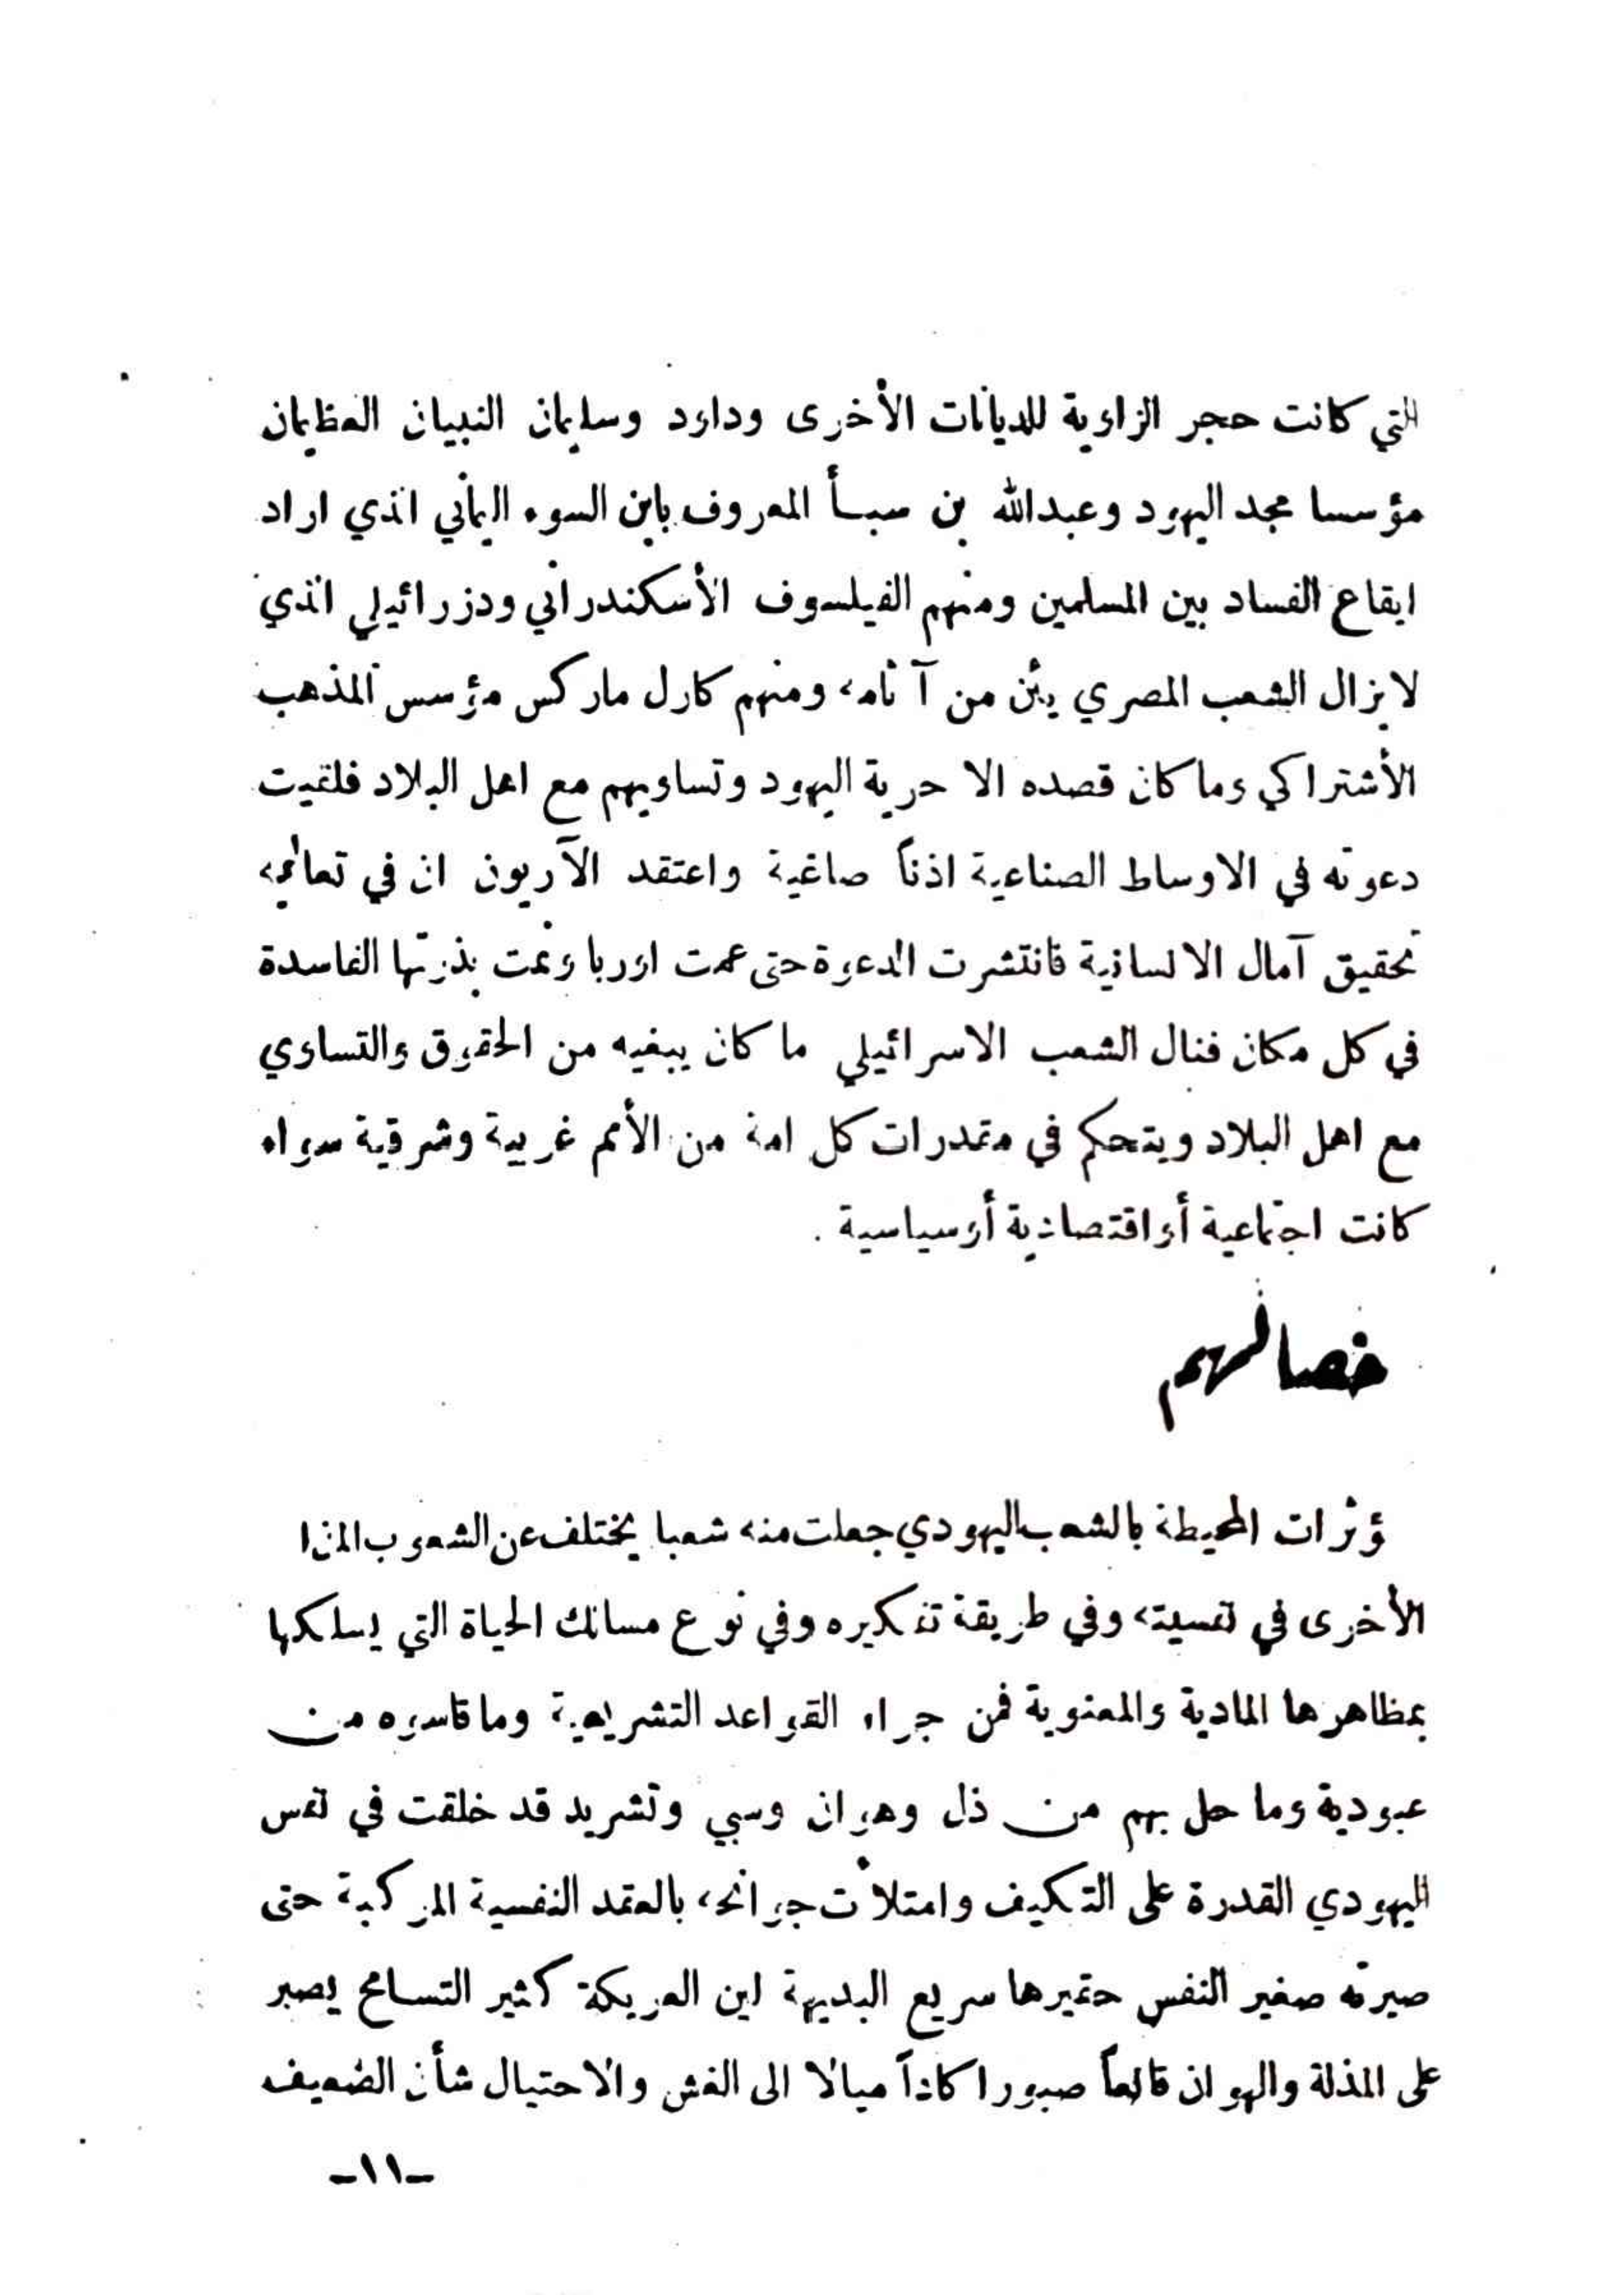 التي كانت حجر الزاوية للديانات الأخرى وداود وسليمان النبيان العظيمان
مؤسسا مجد اليهود وعبدالله بن سبأ المعروف بابن السوء اليماني الذي اراد
ايقاع الفساد بين المسلمين ومنهم الفيلسوف الأسكندراني ودزرائيلي الذي
لا يزال الشعب المصري يئن من آثامه ومنهم كارل ماركس مؤسس المذهب
الأشتراكي وما كان قصده الا حرية اليهود وتساويهم مع اهل البلاد فلقيت
دعوته في الاوساط الصناعية اذناً صاغية واعتقد الآريون ان في تعاليمه
تحقيق آمال الانسانية فانتشرت الدعوة حتى عمت اوربا ونمت بذرتها الفاسدة
في كل مكان فنال الشعب الاسرائيلي ما كان يبغيه من الحقوق والتساوي
مع اهل البلاد ويتحكم في مقدرات كل امة من الأمم غربية وشرقية سواء
كانت اجتماعية أو اقتصادية أو سياسية .
خصالهم
ؤثرات المحيطة بالشعب اليهودي جعلت منه شعبا يختلف عن الشعوب المذا
الأخرى في نفسيته وفي طريقة تفكيره وفي نوع مسالك الحياة التي يسلكها
بمظاهرها المادية والمعنوية فمن جراء القواعد التشريعية وما قاسوه من
عبودية وما حل بهم من ذل وهوان وسبي وتشريد قد خلقت في نفس
اليهودي القدرة على التكيف وامتلأت جوانحه بالعقد النفسية المركبة حتى
صيرته صغير النفس حقيرها سريع البديهة لين العريكة كثير التسامح يصبر
على المذلة والهوان قانعاً صبورا كاذباً ميالا الى الغش والاحتيال شأن الضعيف
-١١-